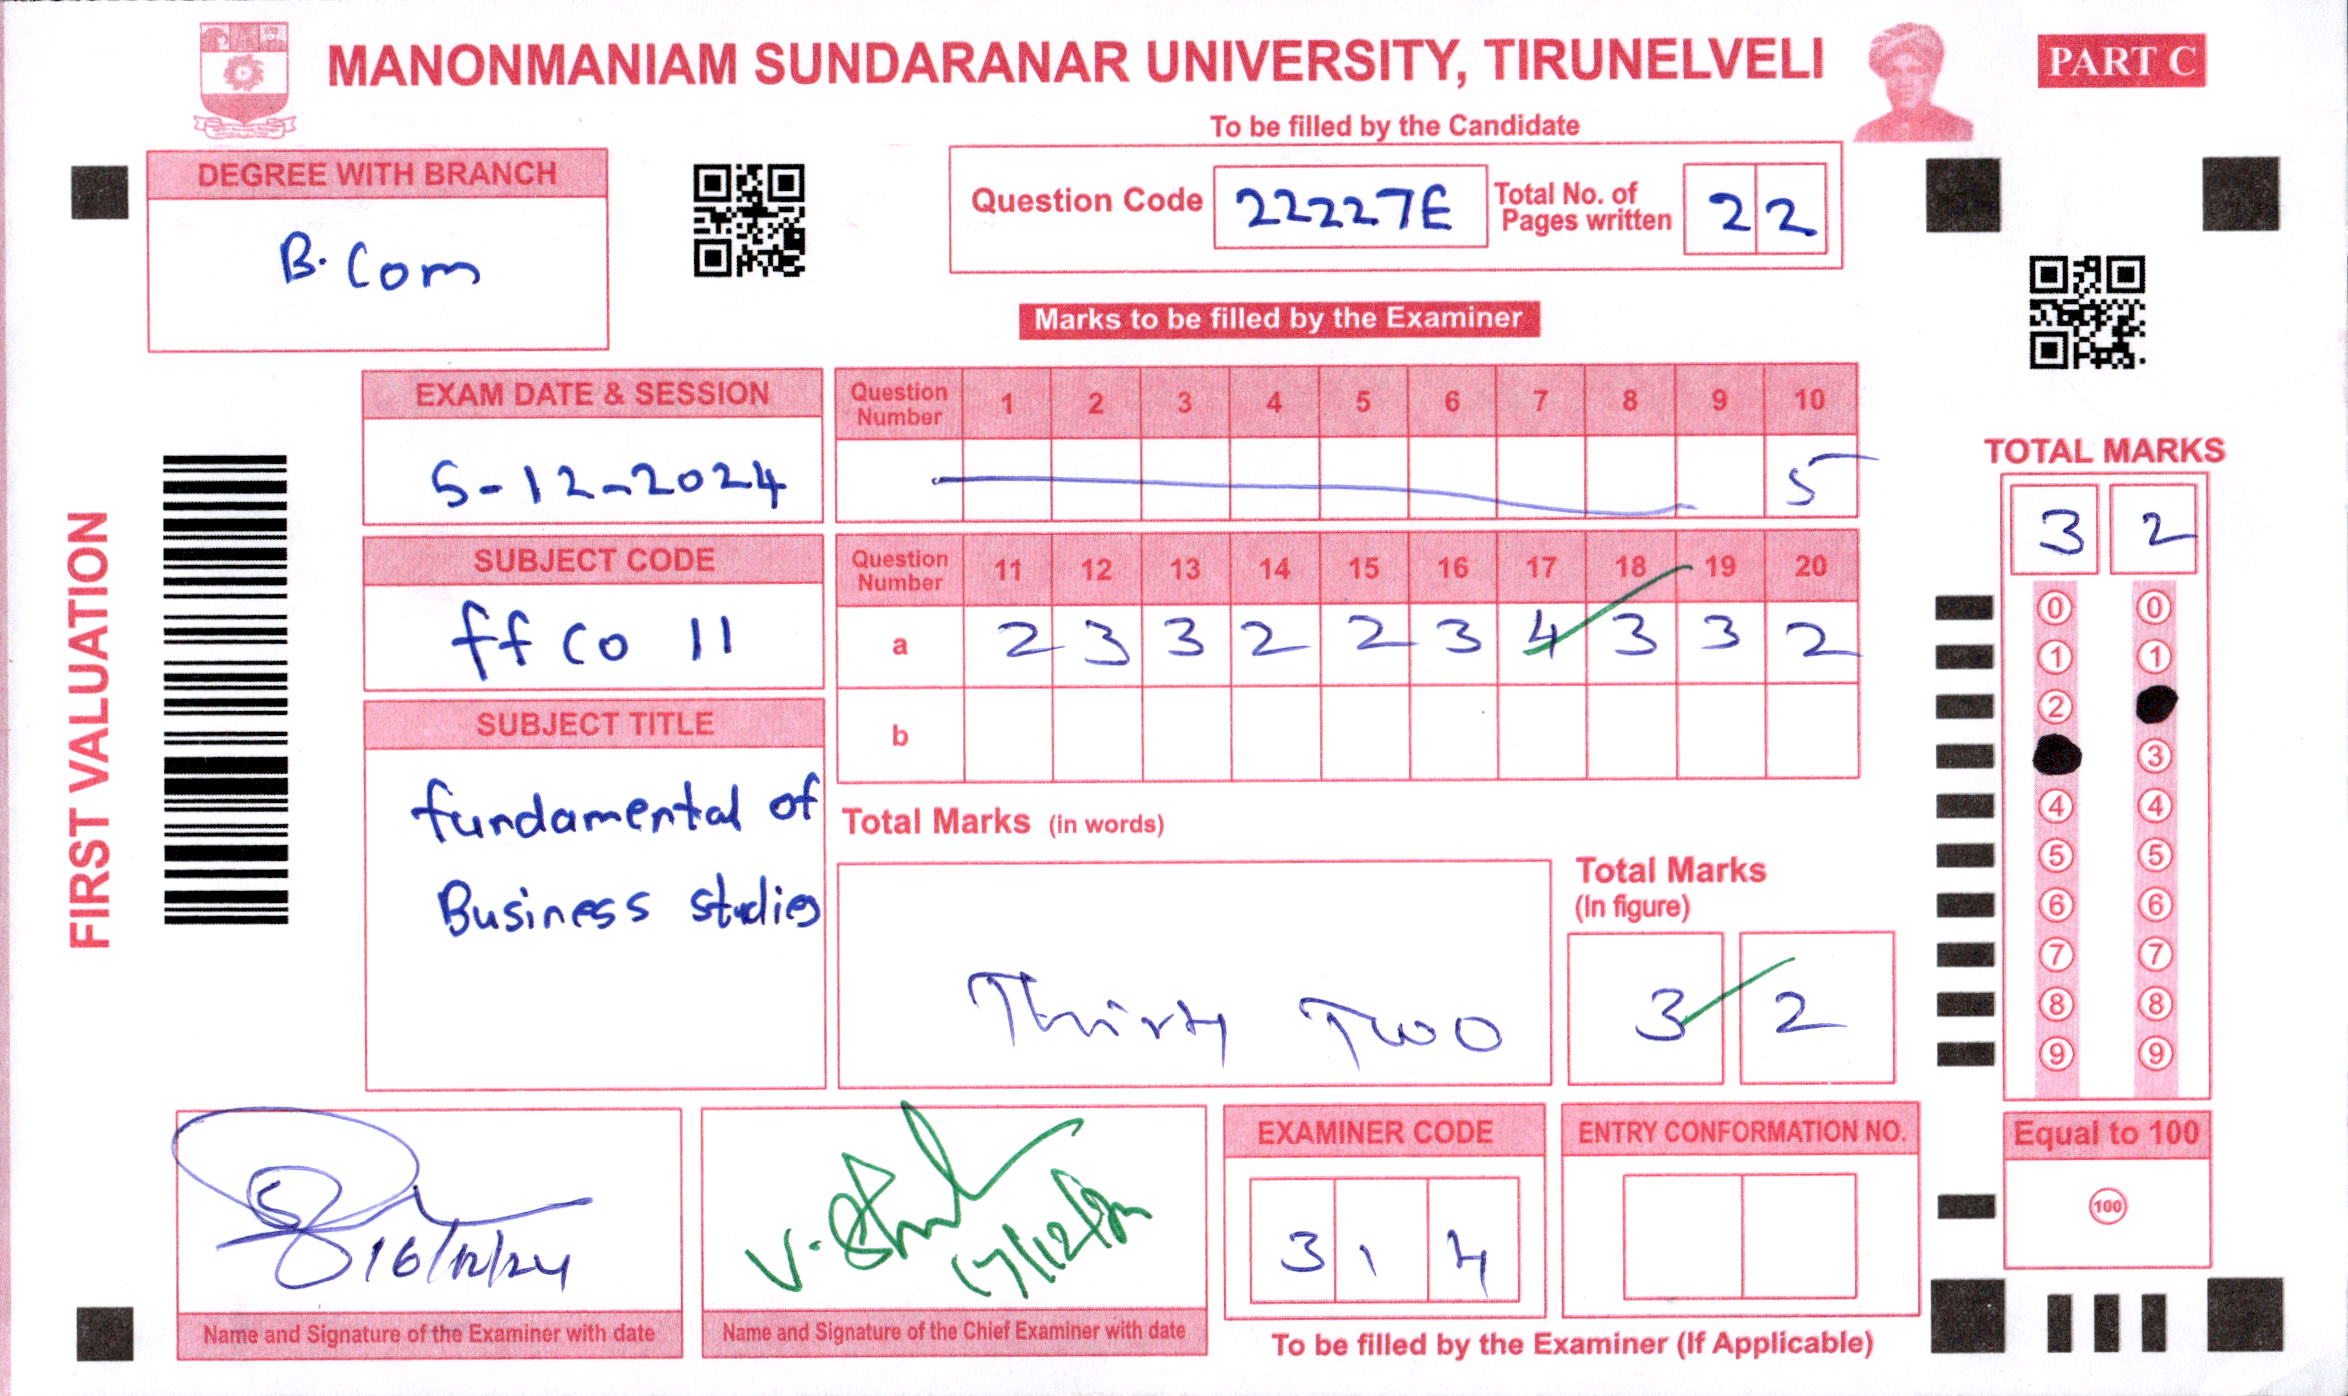 MANONMANIAM SUNDARANAR UNIVERSITY, TIRUNELVELI
PART C
To be filled by the Candidate
DEGREE WITH BRANCH
B. Com
Question Code 22227E Total No. of Pages written 22
Marks to be filled by the Examiner
EXAM DATE & SESSION
5-12-2024
Question Number 1 2 3 4 5 6 7 8 9 10
5
SUBJECT CODE
ff co 11
Question Number 11 12 13 14 15 16 17 18 19 20
a 2 3 3 2 2 3 4 3 3 2
b
SUBJECT TITLE
fundamental of
Business studies
Total Marks (in words)
Thirty Two
Total Marks
(In figure)
3 2
FIRST VALUATION
TOTAL MARKS
3 2
0 0
1 1
2
3
4 4
5 5
6 6
7 7
8 8
9 9
Equal to 100
100
16/12/24
Name and Signature of the Examiner with date
17/12/24
Name and Signature of the Chief Examiner with date
EXAMINER CODE
3 1 4
ENTRY CONFORMATION NO.
To be filled by the Examiner (If Applicable)